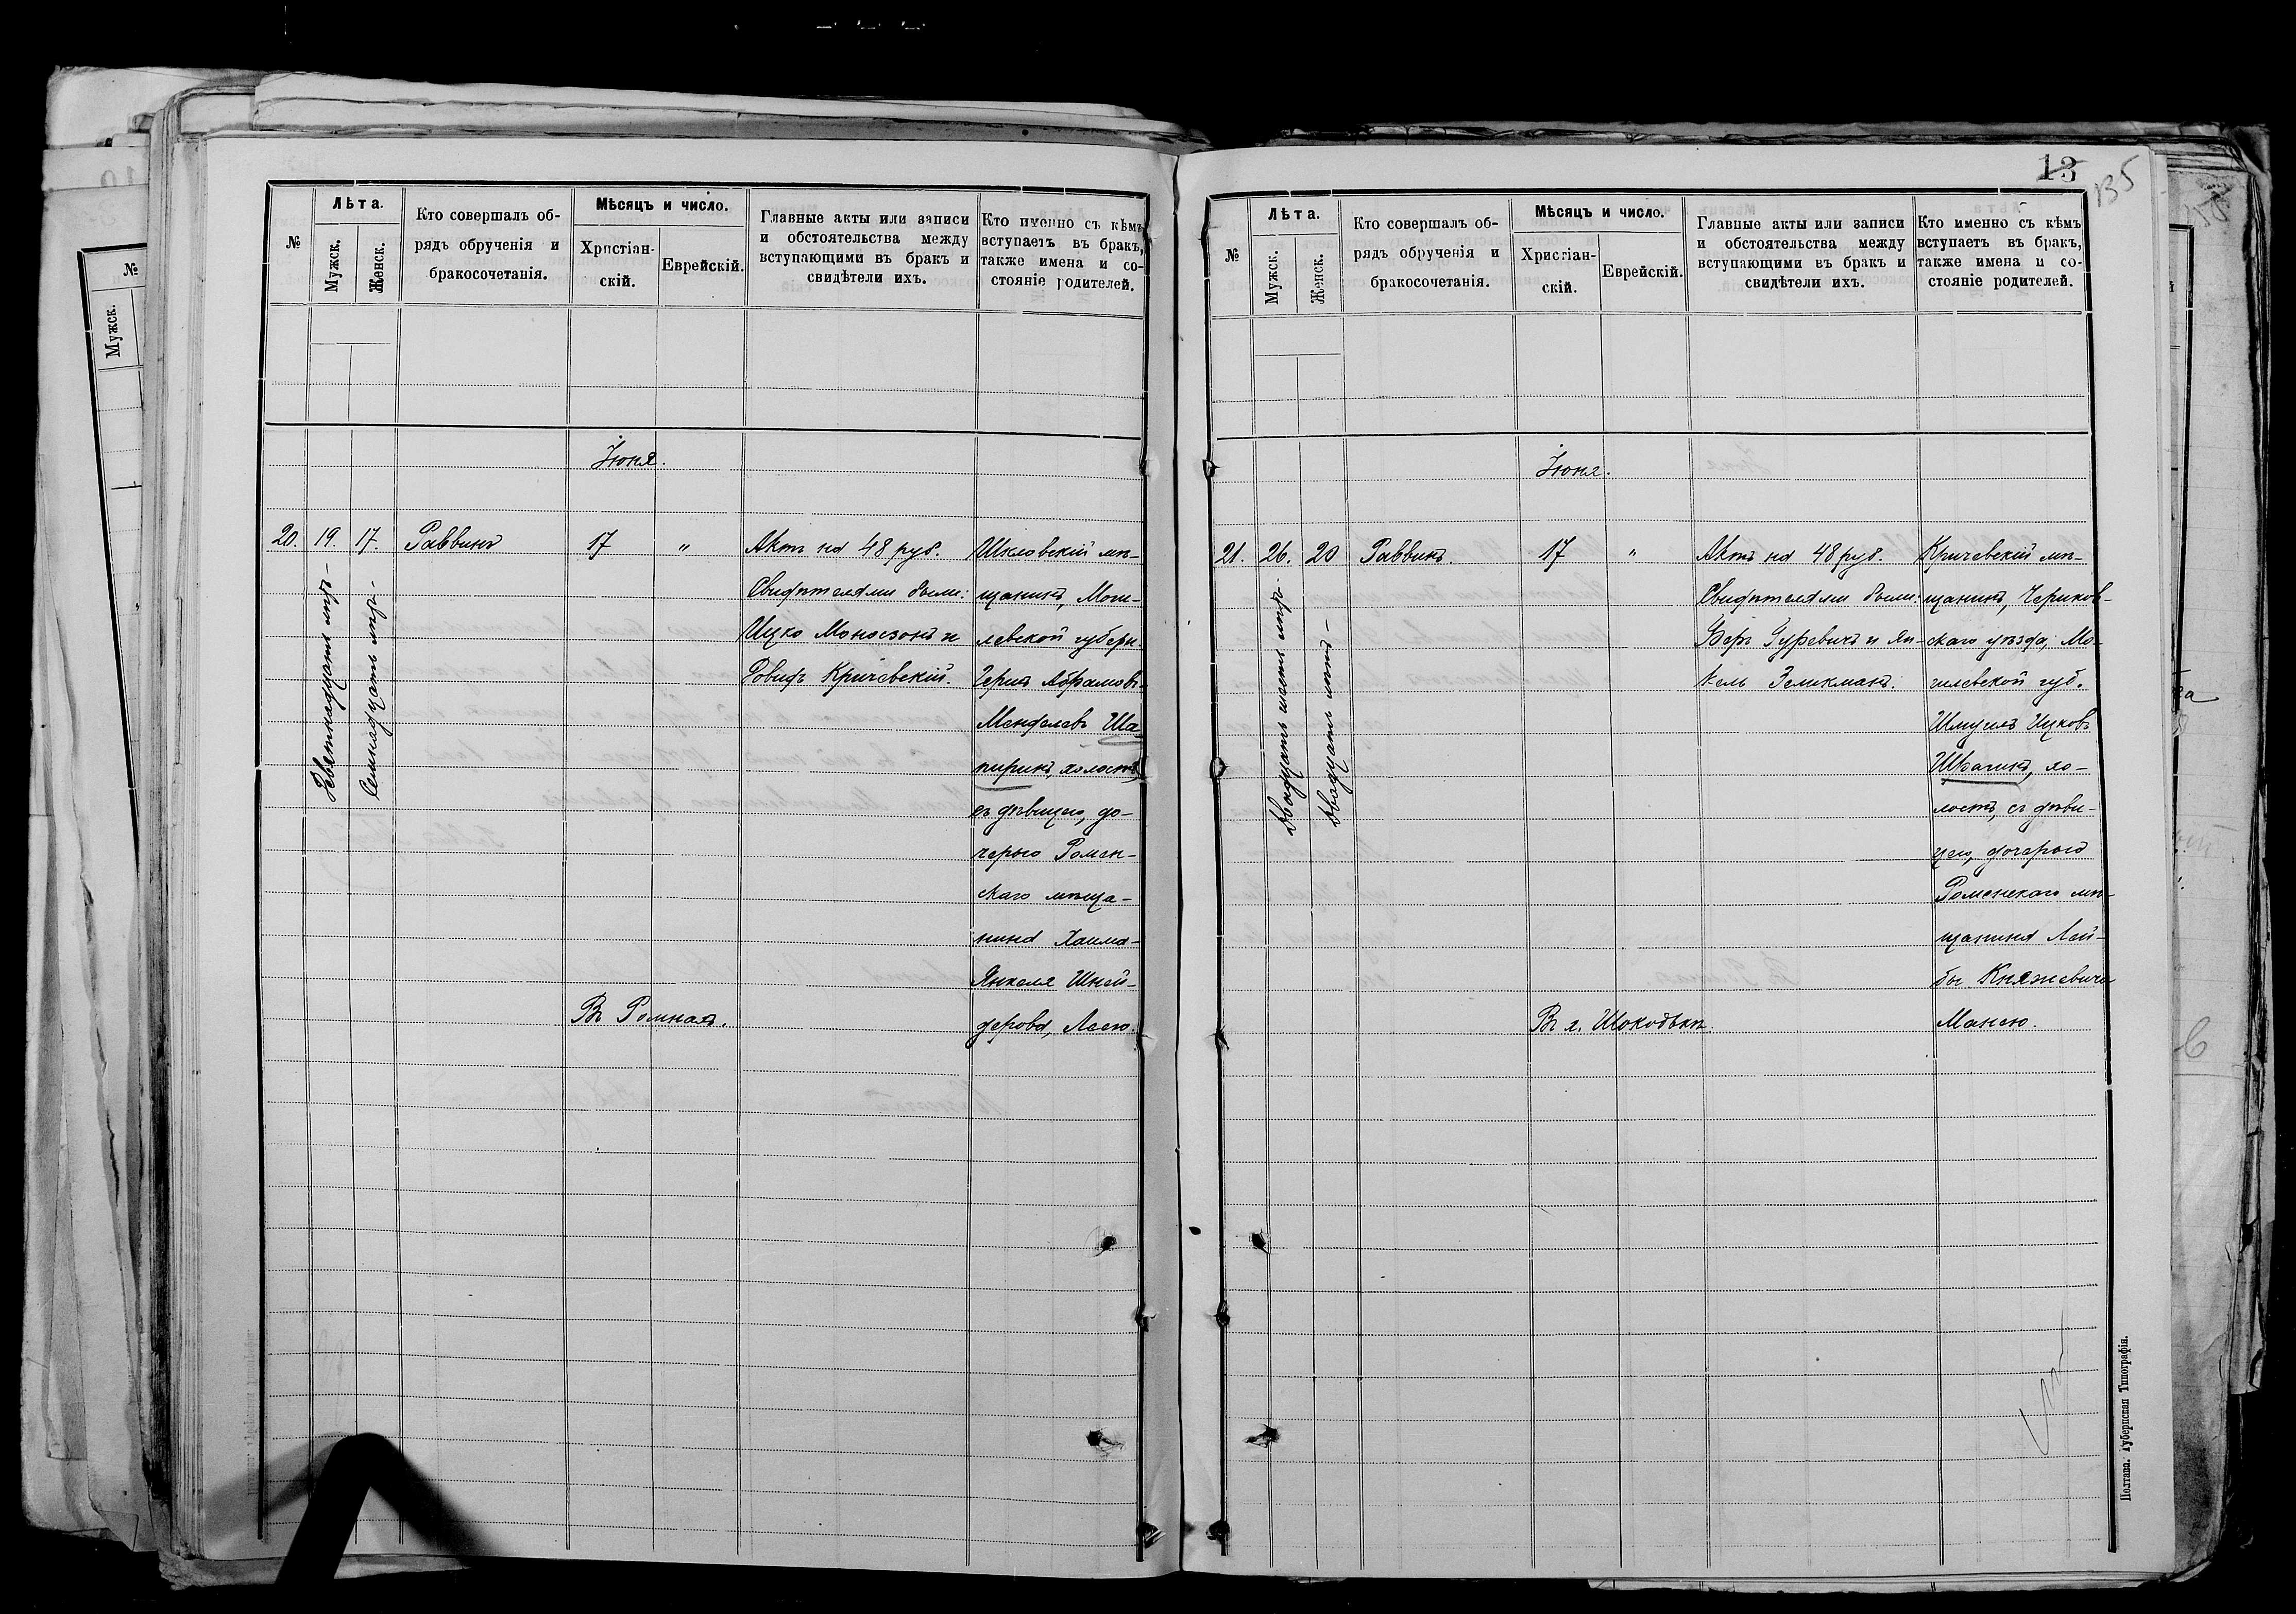 №
Лѣта.
Мужск.
Женск.
Кто совершалъ об-
рядъ обрученія и
бракосочетанія.
Мѣсяцъ и число.
Христіан-
скій.
Еврейскій.
Главные акты или записи
и обстоятельства между
вступающими въ бракъ и
свидѣтели ихъ.
Кто именно съ кѣмъ
вступаетъ въ бракъ,
также имена и со-
стояніе родителей.
Іюня.
20.
19.
Девятнадцати лѣтъ
17.
Семнадцать лѣтъ
Раввинъ
17
"
Въ Ромнахъ.
Актъ на 48 руб.
Свидѣтелями были:
Ицко Моносзонъ и
Довидъ Кричевскій.
Шкловскій мѣ-
щанинъ, Моги-
левской губерн.
Герцъ Абрамовъ-
Менделевъ Ша-
пиринъ, холостъ,
съ дѣвицею, до-
черью Ромен-
скаго мѣща-
нина Хаима-
Янкеля Шней-
дерова, Лесею.
13
135
№
Лѣта.
Мужск.
Женск.
Кто совершалъ об-
рядъ обрученія и
бракосочетанія.
Мѣсяцъ и число.
Христіан-
скій.
Еврейскій.
Главные акты или записи
и обстоятельства между
вступающими въ бракъ и
свидѣтели ихъ.
Кто именно съ кѣмъ
вступаетъ въ бракъ,
также имена и со-
стояніе родителей.
Іюня.
21.
26.
Двадцать шесть лѣтъ
20
Двадцать лѣтъ
Раввинъ.
17
"
Въ
Актъ на 48 руб.
Свидѣтелями были:
Беръ Гуревичъ и Ян-
кель Зеликманъ.
Кричевскій мѣ-
щанинъ, Чериков-
скаго уѣзда, Мо-
гилевской губ.
Шмуилъ Ицковъ
хо-
лостъ, съ дѣви-
цею, дочерью
Роменскаго мѣ-
щанина Лей-
бы Княжевича
Манею.
Полтава. Губернская Типографія.
№
Мужск.